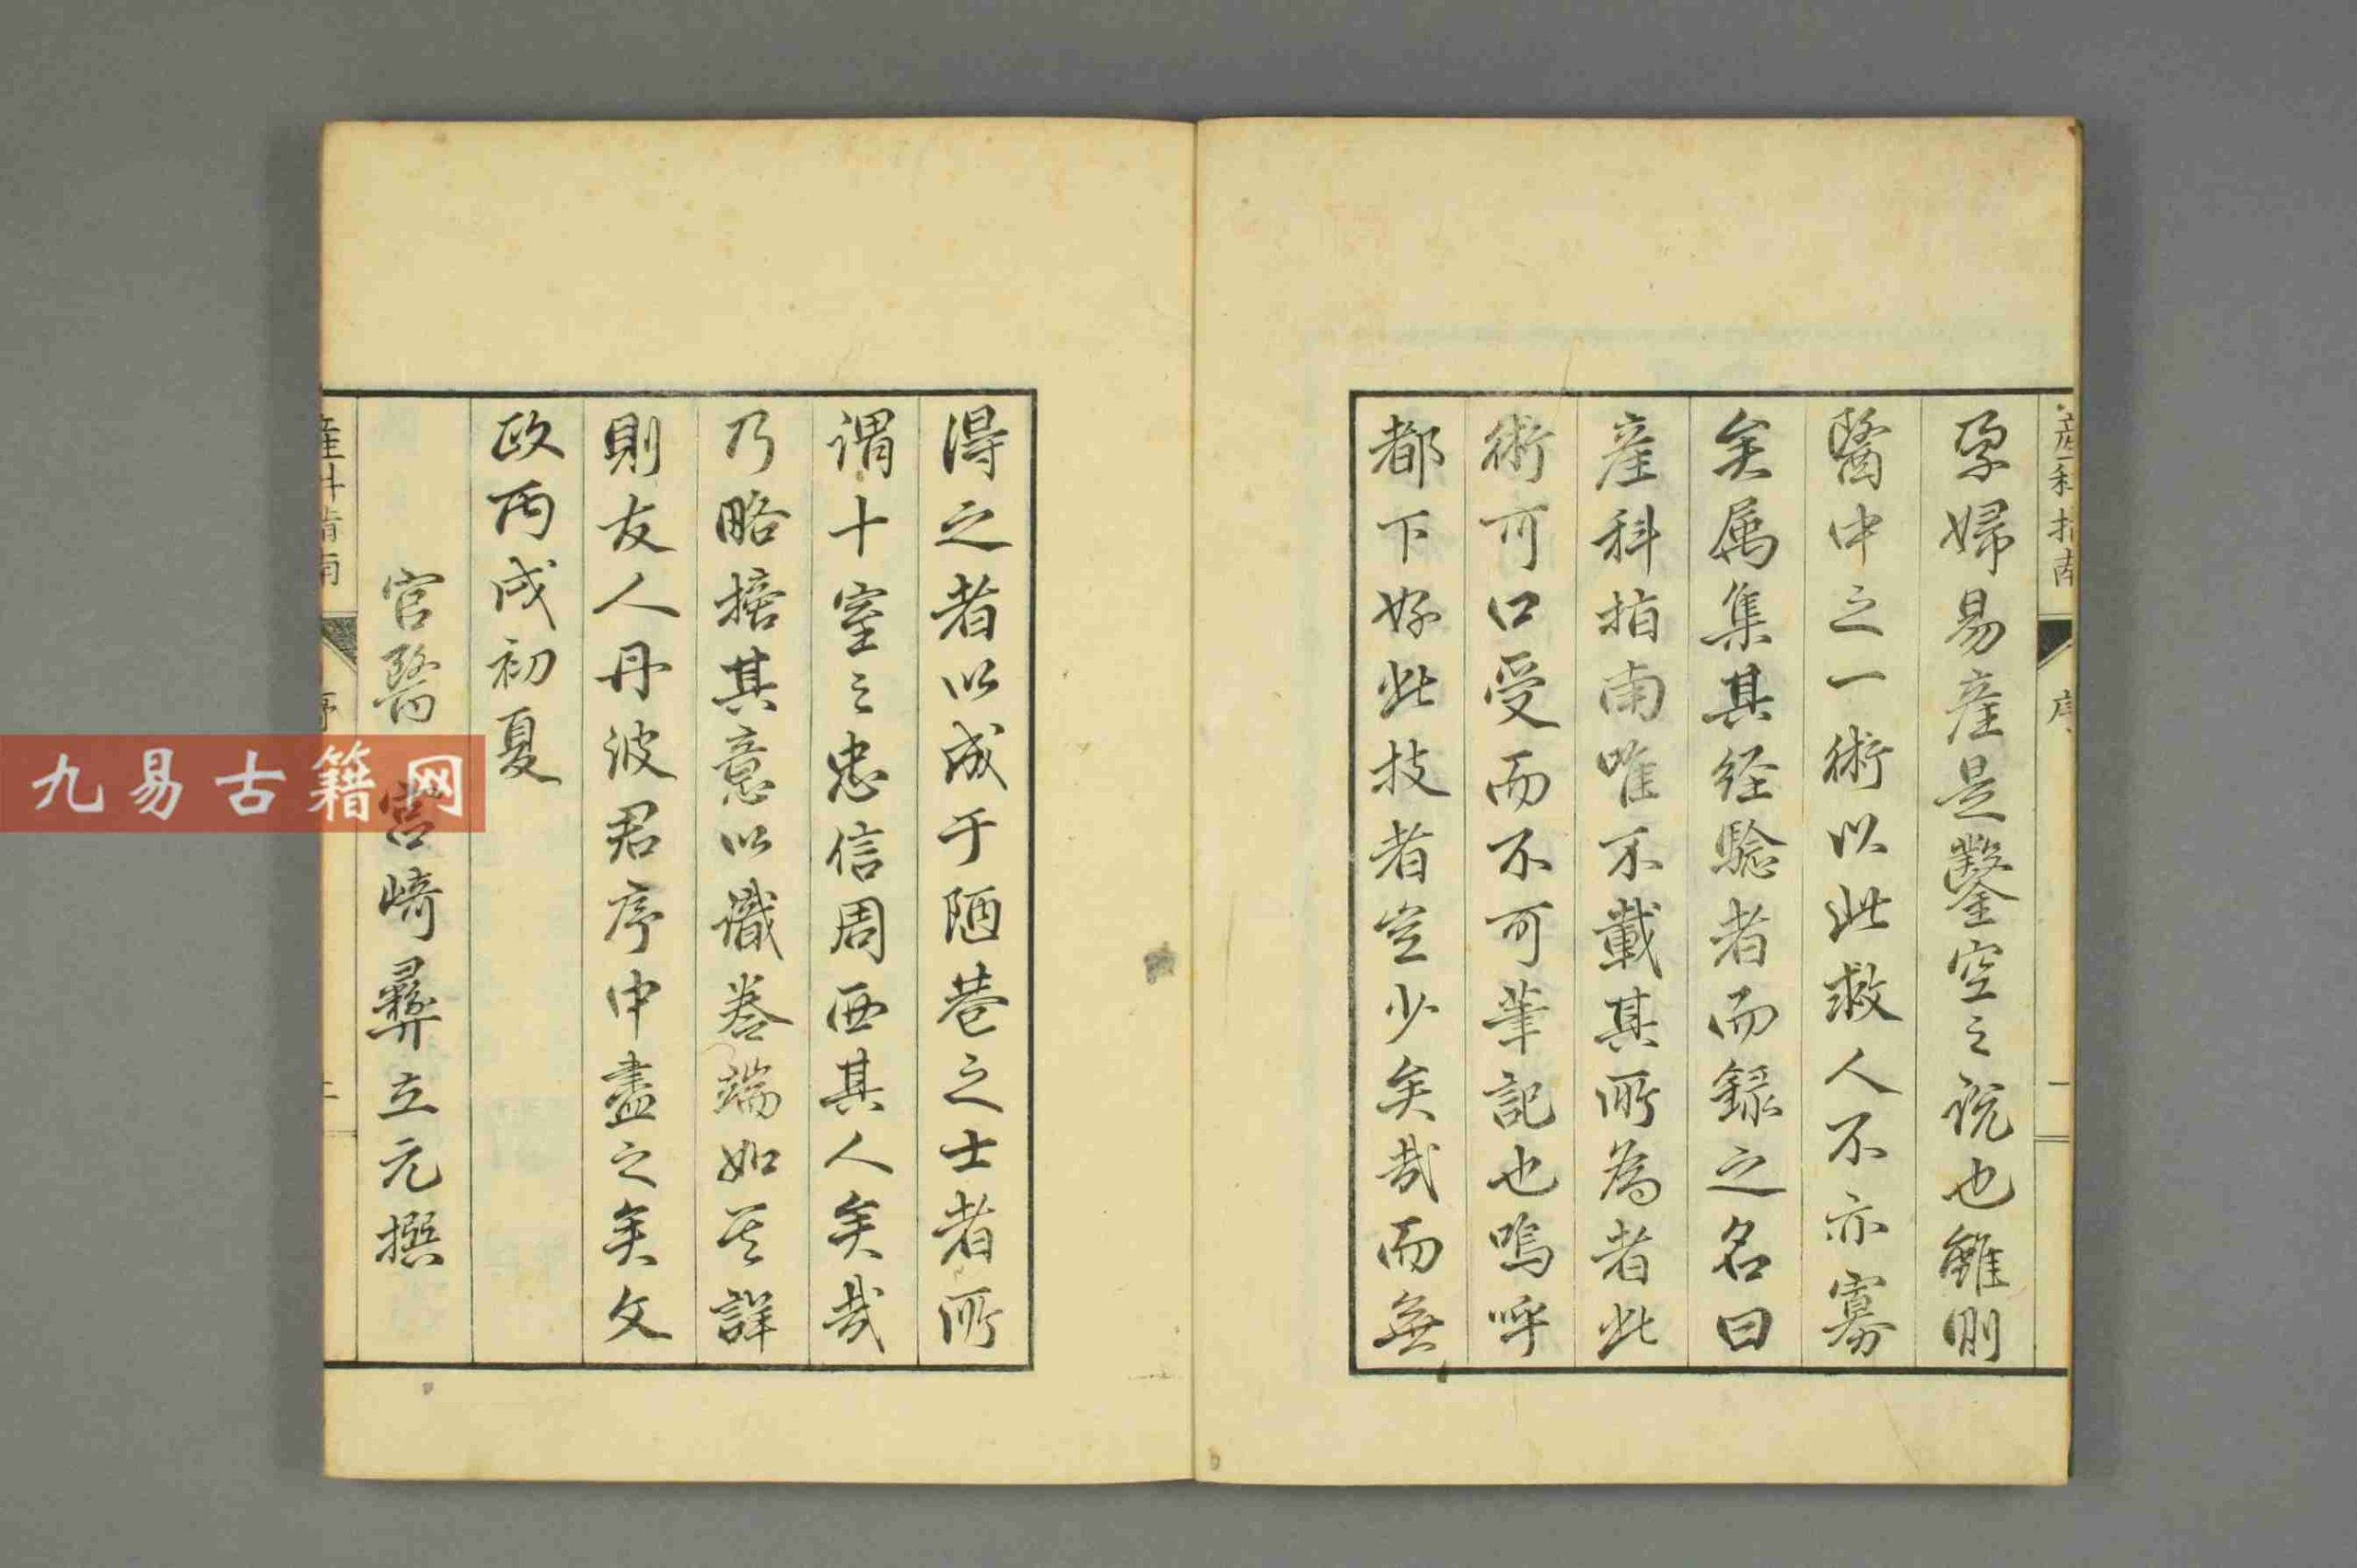 産科指南
序
一
孕婦易産是鑿空之説也雖則
醫中之一術以此救人不亦寡
矣属集其経驗者而録之名曰
産科指南唯不載其所為者此
術可口受而不可筆記也嗚呼
都下好此技者豈少矣哉而無
得之者以成于陋巷之士者所
謂十室之忠信周西其人矣哉
乃略捨其意以識巻端如其詳
則友人丹波君序中盡之矣文
政丙戌初夏
官醫 宮崎彞立元撰
産科指南
序
九易古籍网